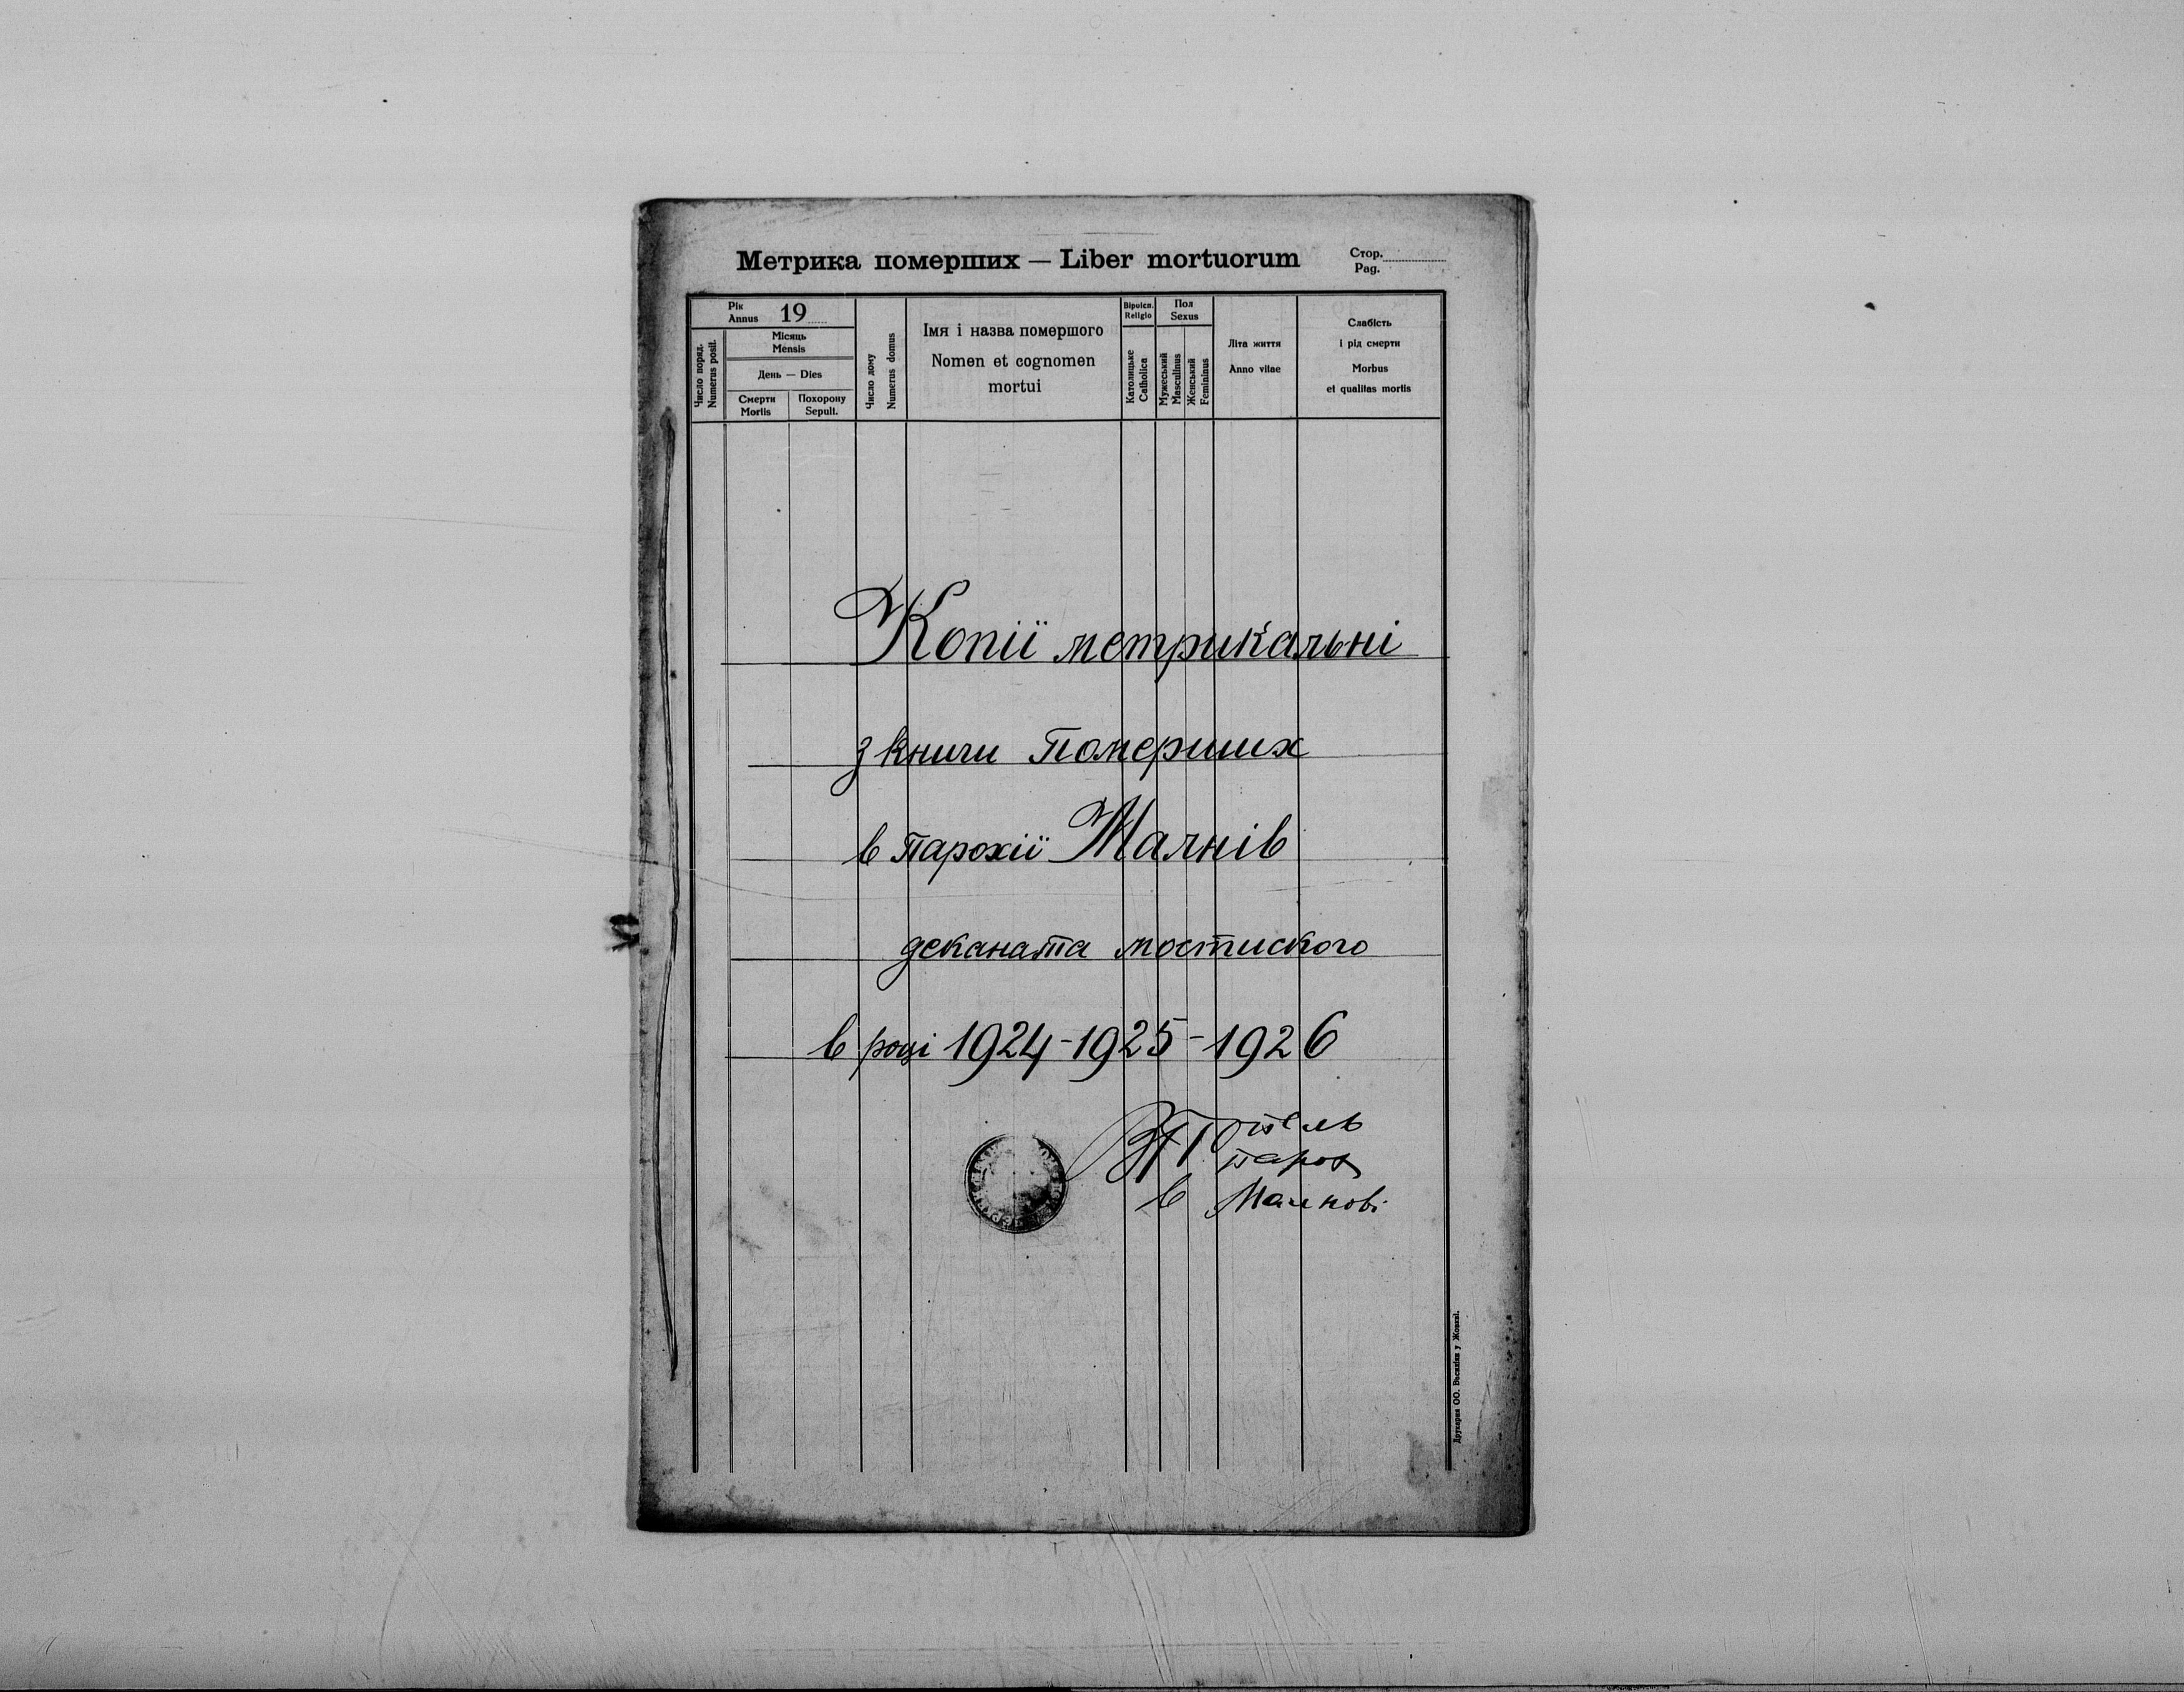 Метрика померших — Liber mortuorum
Стор.
Pag.
Рік
Annus 19
Місяць
Mensis
День — Dies
Смерти
Mortis
Похорону
Sepult.
Число поряд.
Numerus posit.
Число дому
Numerus domus
Імя і назва помершого
Nomen et cognomen
mortui
Віроісп.
Religio
Католицьке
Catholica
Пол
Sexus
Мужеський
Masculinus
Женський
Femininus
Літа життя
Anno vitae
Слабість
і рід смерти
Morbus
et qualitas mortis
Копії метрикальні
з книги Померших
в Парохії Малнів
деканата мостиского
в році 1924-1925-1926
парох
в Малнові
Друкарня ОО. Василіян у Жовкві.